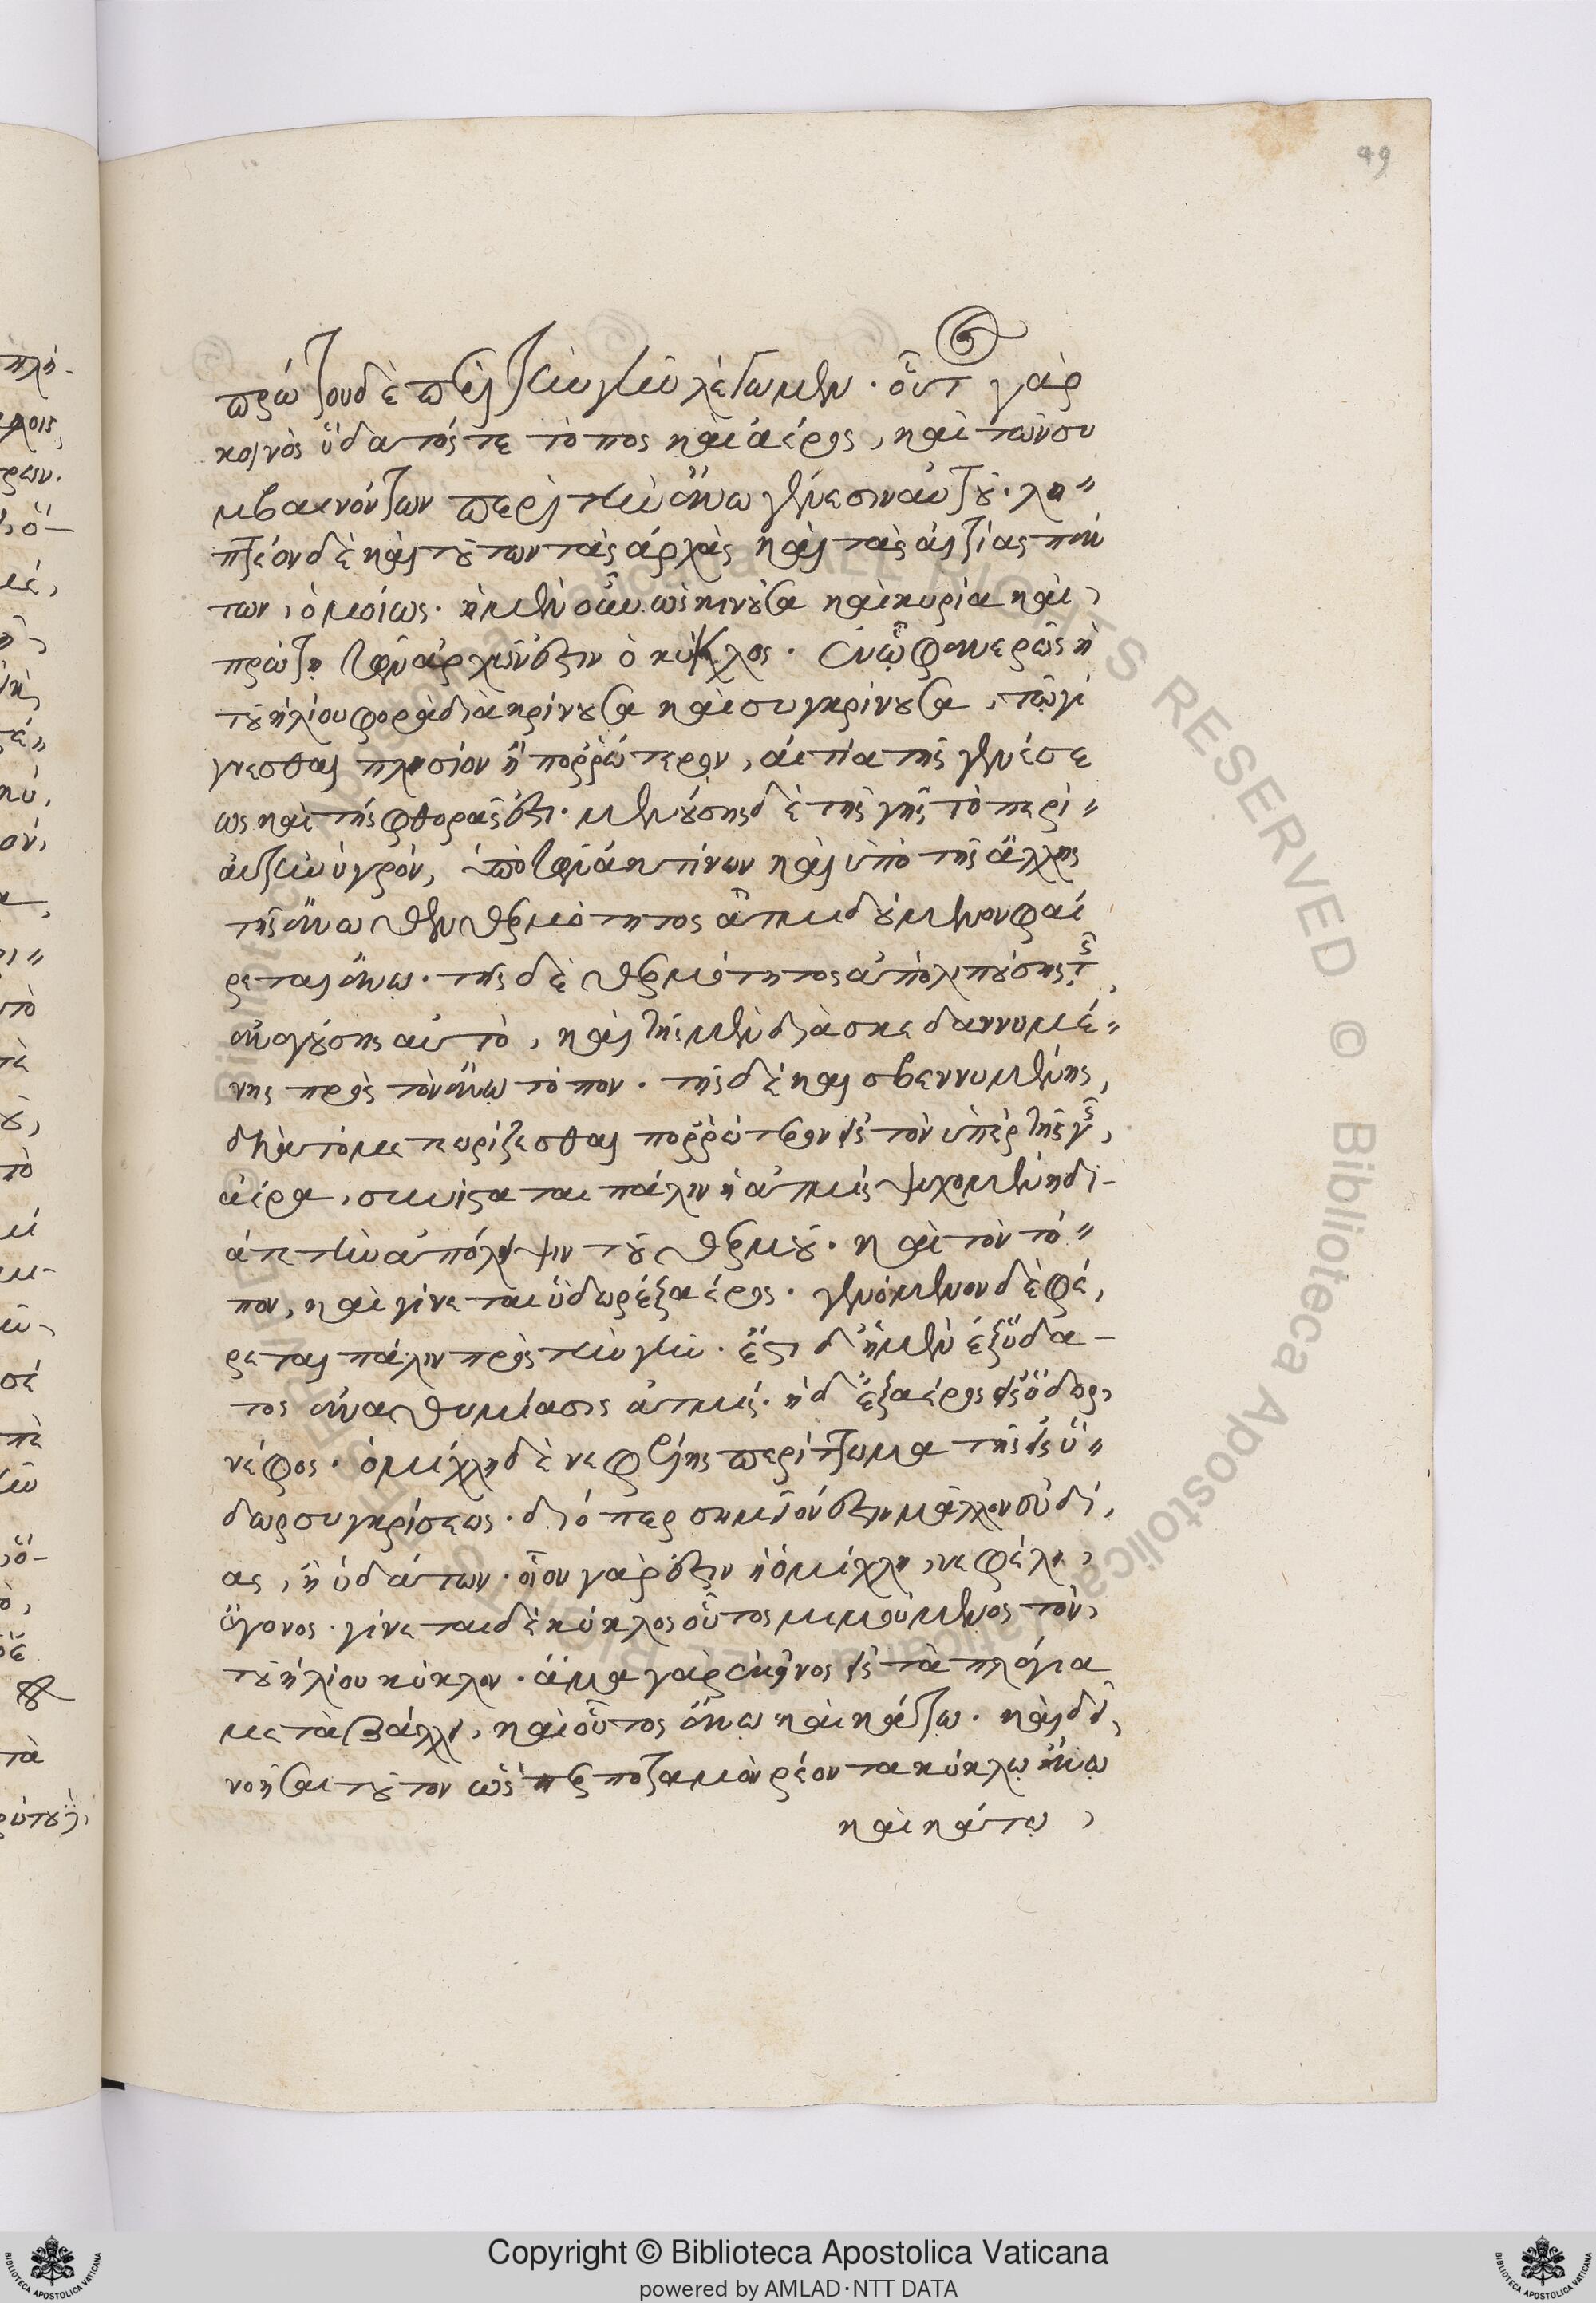 πρώτου δὲ περὶ τὴν γῆν λέγωμεν · οὗτ γὰρ
κοινὸς ὕδατός τε τόπος καὶ ἀέρος, καὶ τῶν συ
μβαινόντων περὶ τὴν ἄνω γένεσιν αὐτοῦ · λη〃
πτέον δὲ καὶ τούτων τὰς ἀρχὰς καὶ τὰς αἰτίας πάν
των, ὁμοίως · ἡ μὲν οὖν ὡς κινοῦσα καὶ κυρία καὶ,
πρώτη τῶν ἀρχῶν ἐστιν ὁ κύκλος · ἐν ᾧ φανερῶς ἡ
τοῦ ἡλίου φορὰ διακρίνουσα καὶ συγκρίνουσα, τῷ γί
γνεσθαι πλησίον ἢ πορρώτερον, αἰτία τῆς γενέσε
ως καὶ τῆς φθορᾶς ἐστι · μενούσης δὲ τῆς γῆς τὸ περὶ〃
αὐτὴν ὑγρόν, ὑπὸ τῶν ἀκτίνων καὶ ὑπὸ τῆς ἄλλης
τῆς ἄνωθεν θερμότητος ἀτμιδούμενον φαί
ρεται ἄνω · τῆς δὲ θερμότητος ἀπολιπούσης τῆς,
ἀναγούσης αὐτὸ, καὶ τῆς μὲν διασκεδαννυμέ〃
νης πρὸς τὸν ἄνω τόπον · τῆς δὲ καὶ σβεννυμένης,
διὰ τὸ μετεωρίζεσθαι πορρώτερον εἰς τὸν ὑπὲρ τῆς γῆς,
ἀέρα, συνίσταται πάλιν ἡ ἀτμὶς ψυχομένη δι-
ά τε τὴν ἀπόλειψιν τοῦ θερμοῦ · καὶ τὸν τό〃
πον, καὶ γίνεται ὕδωρ ἐξ ἀέρος · γενόμενον δὲ φέ,
ρεται πάλιν πρὸς τὴν γῆν · ἔστι δ' ἡ μὲν ἐξ ὕδα-
τος ἀναθυμίασις ἀτμίς · ἡ δ' ἐξ ἀέρος εἰς ὕδωρ,
νέφος · ὁμίχλη δὲ νεφέλης περίττωμα τῆς εἰς ὕ〃
δωρ συγκρίσεως · διόπερ σημεῖόν ἐστιν μᾶλλον εὐδί,
ας, ἢ ὑδάτων · οἷον γάρ ἐστιν ἡ ὁμίχλη, νεφέλη,
ἄγονος · γίνεται δὲ κύκλος οὗτος μιμούμενος τὸν,
τοῦ ἡλίου κύκλον · ἅμα γὰρ ἐκεῖνος εἰς τὰ πλάγια
μεταβάλλει, καὶ οὗτος ἄνω καὶ κάτω · καὶ δεῖ,
νοῆσαι τοῦτον ὥσπερ ποταμὸν ῥέοντα κύκλῳ ἄνω
καὶ κάτω,
Copyright © Biblioteca Apostolica Vaticana
powered by AMLAD·NTT DATA